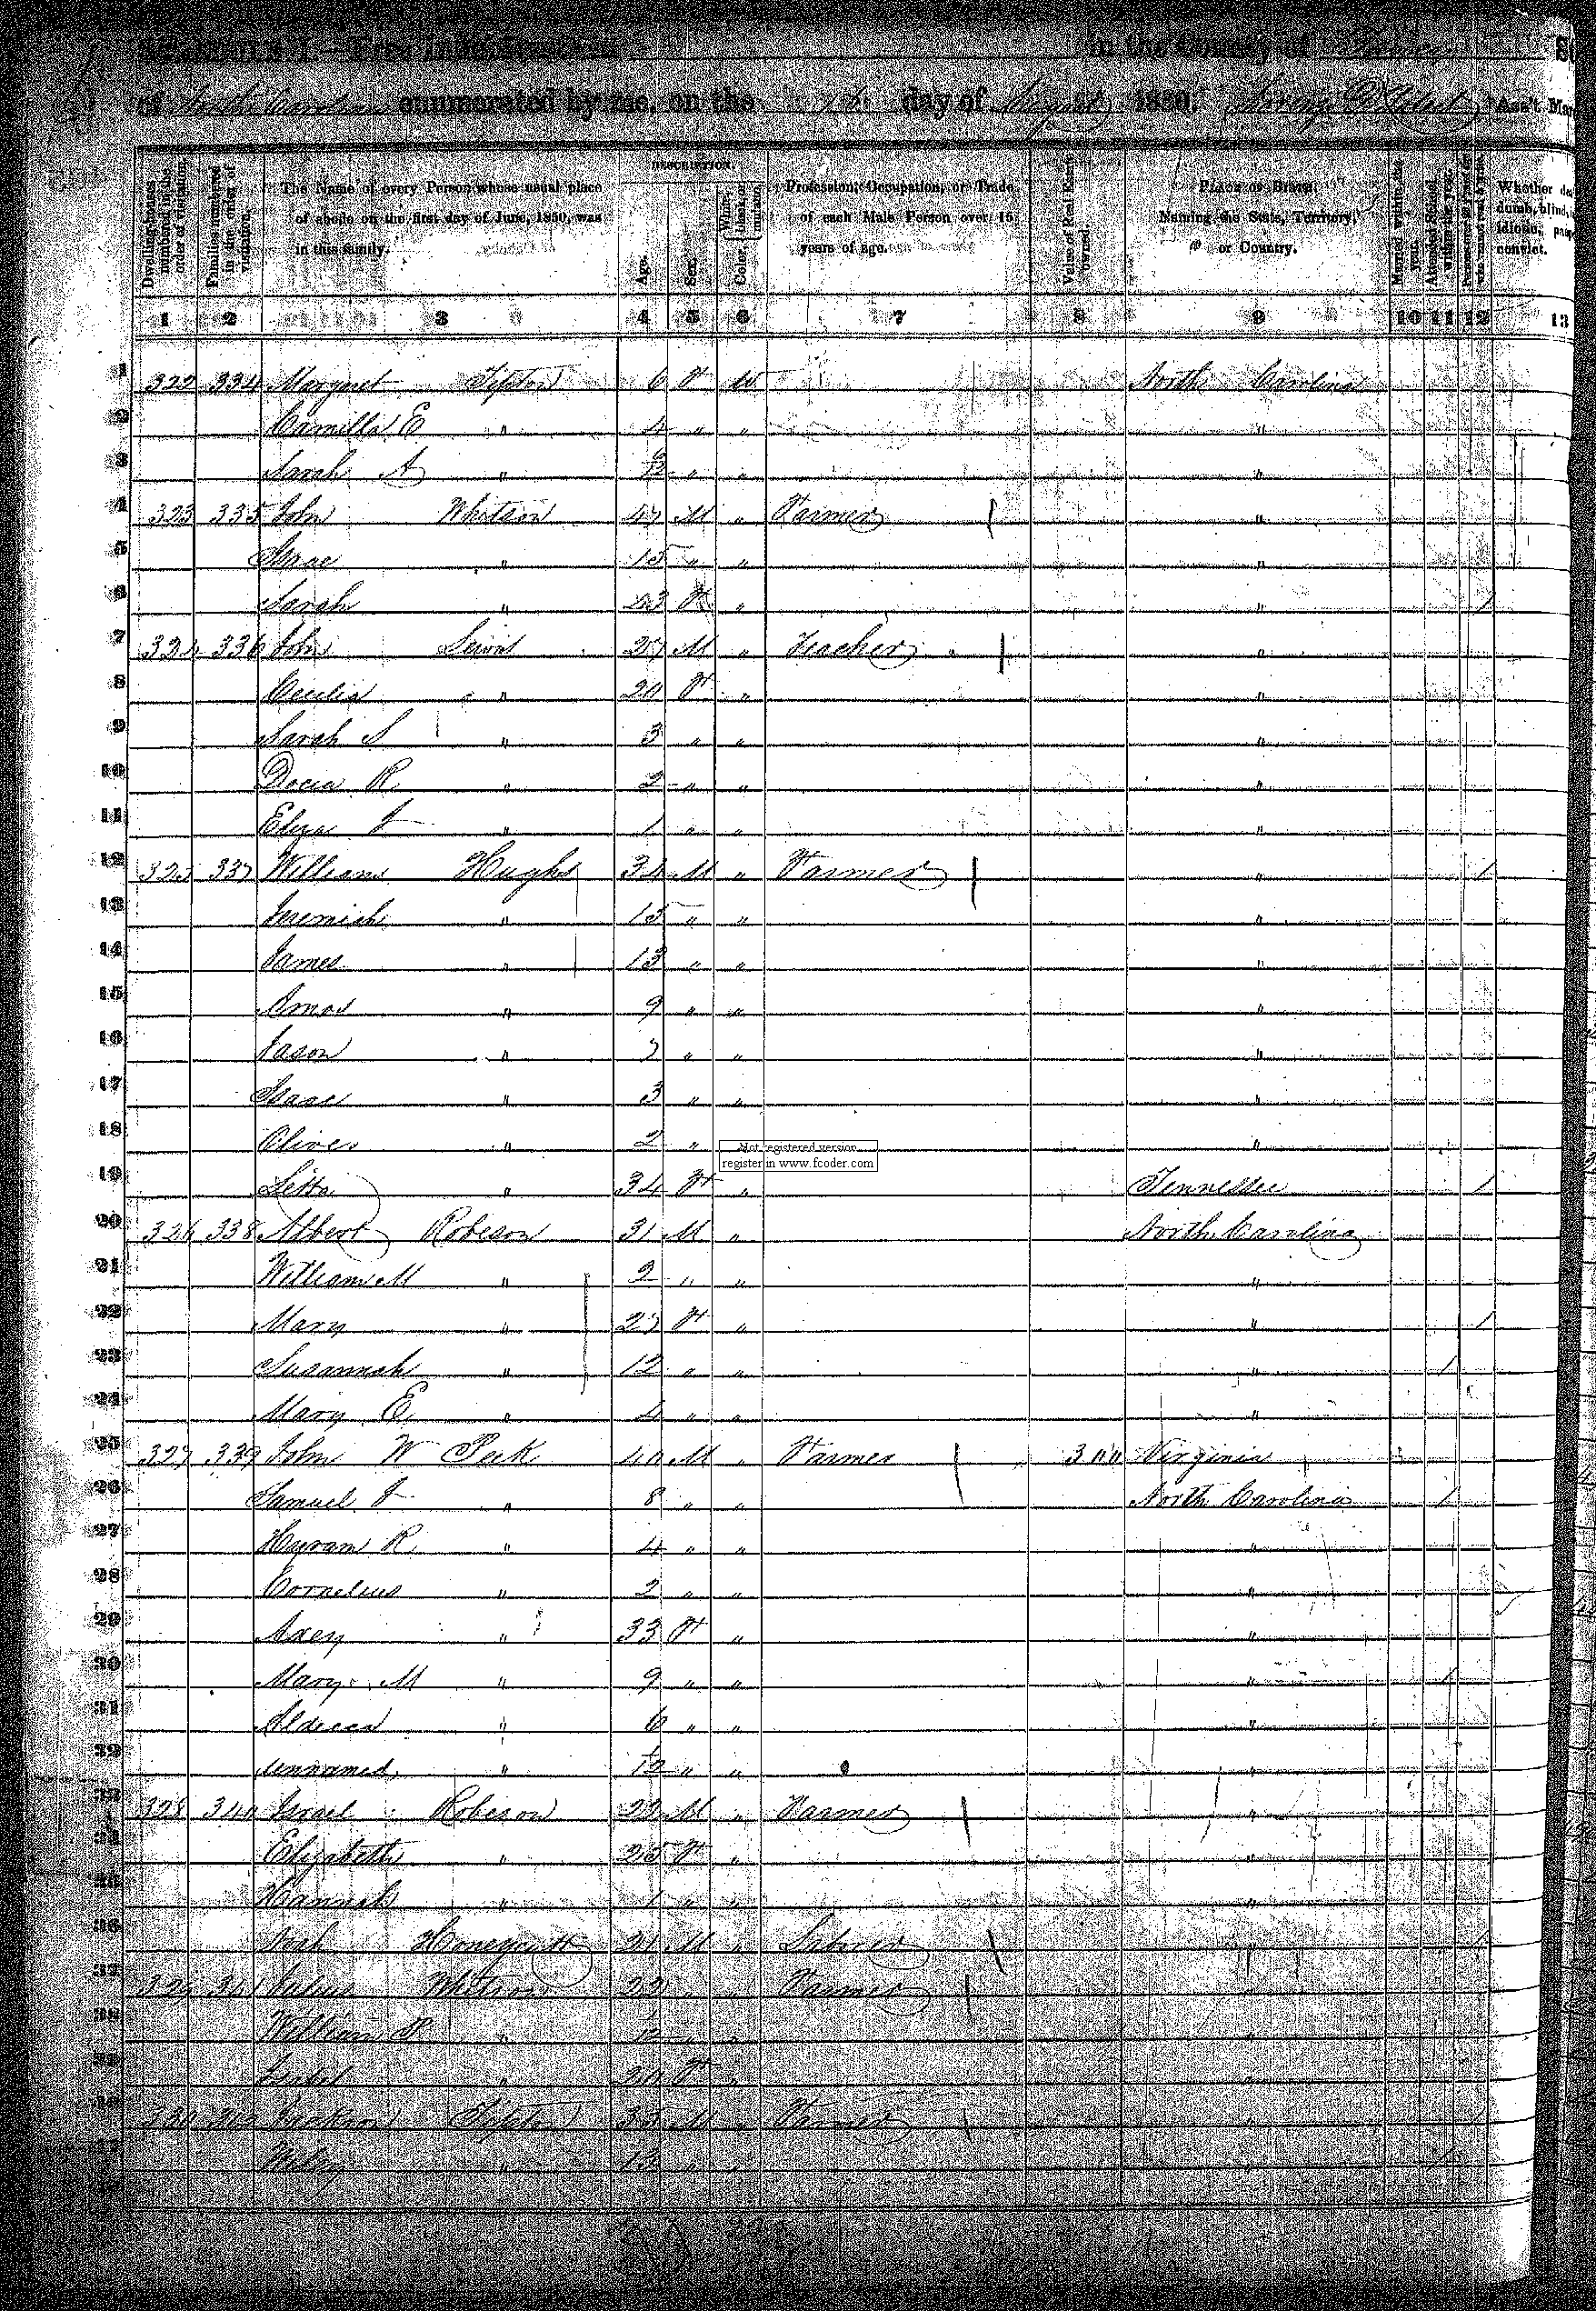 SCHEDULE I.—Free Inhabitants in in the County of Yancey
of North Carolina enumerated by me, on the day of August 1850. Ass't Mar
DESCRIPTION.
Dwelling-houses numbered in the order of visitation.
Families numbered in the order of visitation.
The Name of every Person whose usual place of abode on the first day of June, 1850, was in this family.
Age.
Sex.
Color, White, black, or mulatto.
Profession, Occupation, or Trade of each Male Person over 15 years of age.
Value of Real Estate owned.
PLACE OF BIRTH. Naming the State, Territory, or Country.
Married within the year.
Attended School within the year.
Persons over 20 y'rs of age who cannot read & write.
Whether deaf dumb, blind, idiotic, convict.
1 2 3 4 5 6 7 8 9 10 11 12 13
1 322 334 Margaret Tipton 6 F W North Carolina
2 Camilla E " 4 " " "
3 Sarah A " 6/12 " " "
4 323 335 John Whitson 47 M " Farmer "
5 Isaac " 15 " " "
6 Sarah " 43 F " " 1
7 324 336 John Lewis 27 M " Teacher "
8 Cecilia " 20 F "
9 Sarah S " 3 " " "
10 Docia R " 2 " " "
11 Eliza J " 1 " " "
12 325 337 William Hughs 34 M " Farmer " 1
13 Jeremiah " 15 " " "
14 James " 13 " " "
15 Amos " 9 " " "
16 Jason " 7 " " "
17 Isaac " 3 " " "
18 Oliver " 2 " "
Not registered version
register in www.fcoder.com
19 Letta " 34 F " Tennessee 1
20 326 338 Albert Robeson 31 M " North Carolina
21 William M " 2 " " "
22 Mary " 27 F " " 1
23 Susannah " 12 " " " 1
24 Mary E " 4 " " "
25 327 339 John W Peek 40 M " Farmer 300 Virginia
26 Samuel J " 8 " " North Carolina 1
27 Hyram R " 4 " " "
28 Cornelius " 2 " " "
29 Axey " 33 F " "
30 Mary M " 9 " " " 1
31 " 6 " " "
32 unnamed " 1/12 " " "
33 328 340 Israel Robeson 22 M " Farmer "
34 Elizabeth " 25 F " "
35 Hannah " 1 " " "
36 Honeycutt 21 M " Laborer " 1
37 329 341 Whitson 22 " " Farmer "
38 William " "
39 " 20 F " "
40 330 342 Jackson Tipton 35 M " Farmer "
41 " 13 " "